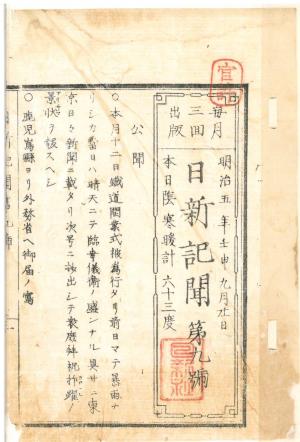 官許
毎月三囬出版
明治五年壬申九月廿日
本日陰寒暖計六十三度
日新記聞 第九號
公聞
○本月十二日鐵道開業式被爲行タリ前日マテ暴雨ナ
リシカ當日ハ晴天ニテ臨幸儀衛ノ盛ンナル具サニ東
京日々新聞ニ載タリ次号ニ抜出シテ衆庶
景状ヲ
○鹿児嶌縣ヨリ外務省ヘ御届ノ寫